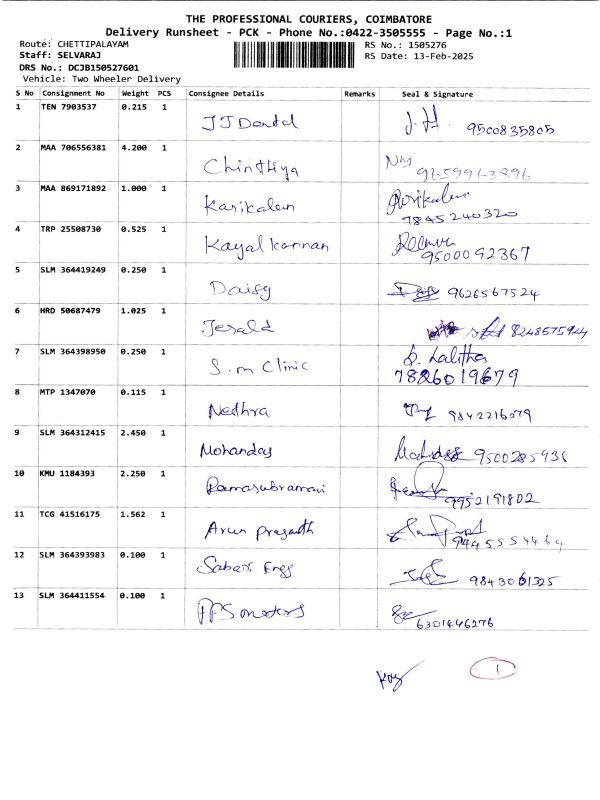 THE PROFESSIONAL COURIERS, COIMBATORE
Delivery Runsheet - PCK - Phone No.:0422-3505555 - Page No.:1
Route: CHETTIPALAYAM RS No.: 1505276
Staff: SELVARAJ RS Date: 13-Feb-2025
DRS No.: DCJB150527601
Vehicle: Two Wheeler Delivery
S No Consignment No Weight PCS Consignee Details Remarks Seal & Signature
1 TEN 7903537 0.215 1 JJ Dental 9500835805
2 MAA 706556381 4.200 1 Chinthiya
3 MAA 869171892 1.000 1 Karikalan 9845240320
4 TRP 25508730 0.525 1 Kayal kannan 9500092367
5 SLM 364419249 0.250 1 Daisy 9626567524
6 HRD 50687479 1.025 1 Jerald 8248575944
7 SLM 364398950 0.250 1 S.m Clinic S. Lalitha
7826019679
8 MTP 1347070 0.115 1 Nedhra 9842216079
9 SLM 364312415 2.450 1 Mohandas 9500285936
10 KMU 1184393 2.250 1 Ramasubramani 9952191802
11 TCG 41516175 1.562 1 Arun prasanth 9445554464
12 SLM 364393983 0.100 1 Sabari Engg 9843061325
13 SLM 364411554 0.100 1 PPS motors 6301446276
1